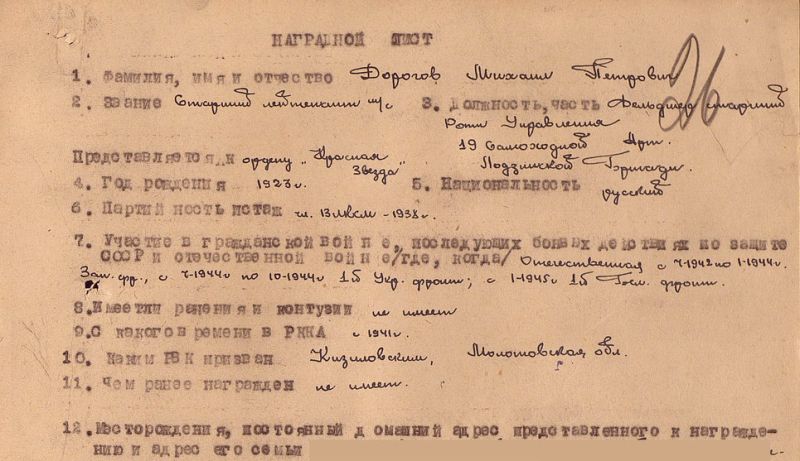 НАГРАДНОЙ ЛИСТ
26
1. Фамилия, имя и отчество Дорогов Михаил Петрович
2. Звание Старший лейтенант м/с 3. Должность, часть Фельдшер старший
Роты Управления
19 Самоходной Арт.
Представляется к ордену „Красная Звезда" Лодзинской Бригады.
4. Год рождения 1923 г. 5. Национальность русский
6. Партийность и стаж чл. ВЛКСМ – 1938 г.
7. Участие в гражданской войне, последующих боевых действиях по защите
СССР и отечественной войне /где, когда/ Отечественная с 7-1942 по 1-1944 г.
Зап. фр., с 7-1944 г по 10-1944 г 1 б Укр. фронт; с 1-1945 г 1 б фронт.
8. Имеет ли ранения и контузии не имеет
9. С какого времени в РККА с 1941 г.
10. Каким РВК призван Кизиловским, Молотовская обл.
11. Чем ранее награжден не имеет.
12. Место рождения, постоянный домашний адрес представленного к награжде-
нию и адрес его семьи